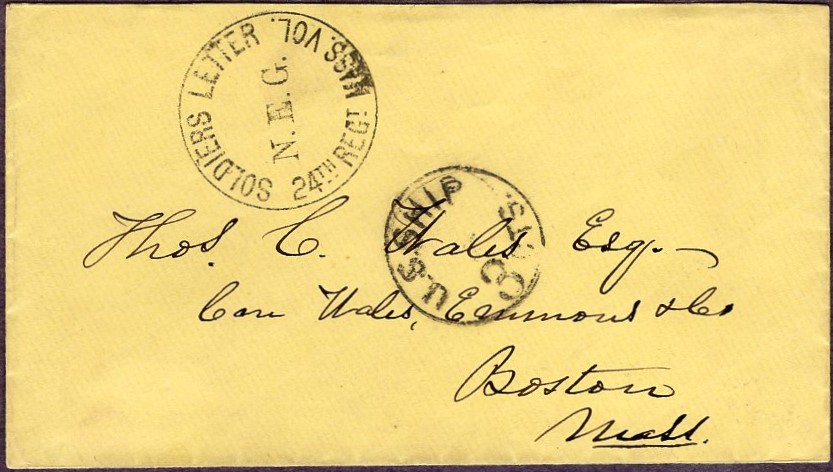 SOLDIERS LETTER. MASS. VOL.
N. E. G.
24TH REGT
U.S. SHIP
3 CTS.
Thos. C. Wales Esq.
Care Wales, Emmons & Co
Boston
Mass.